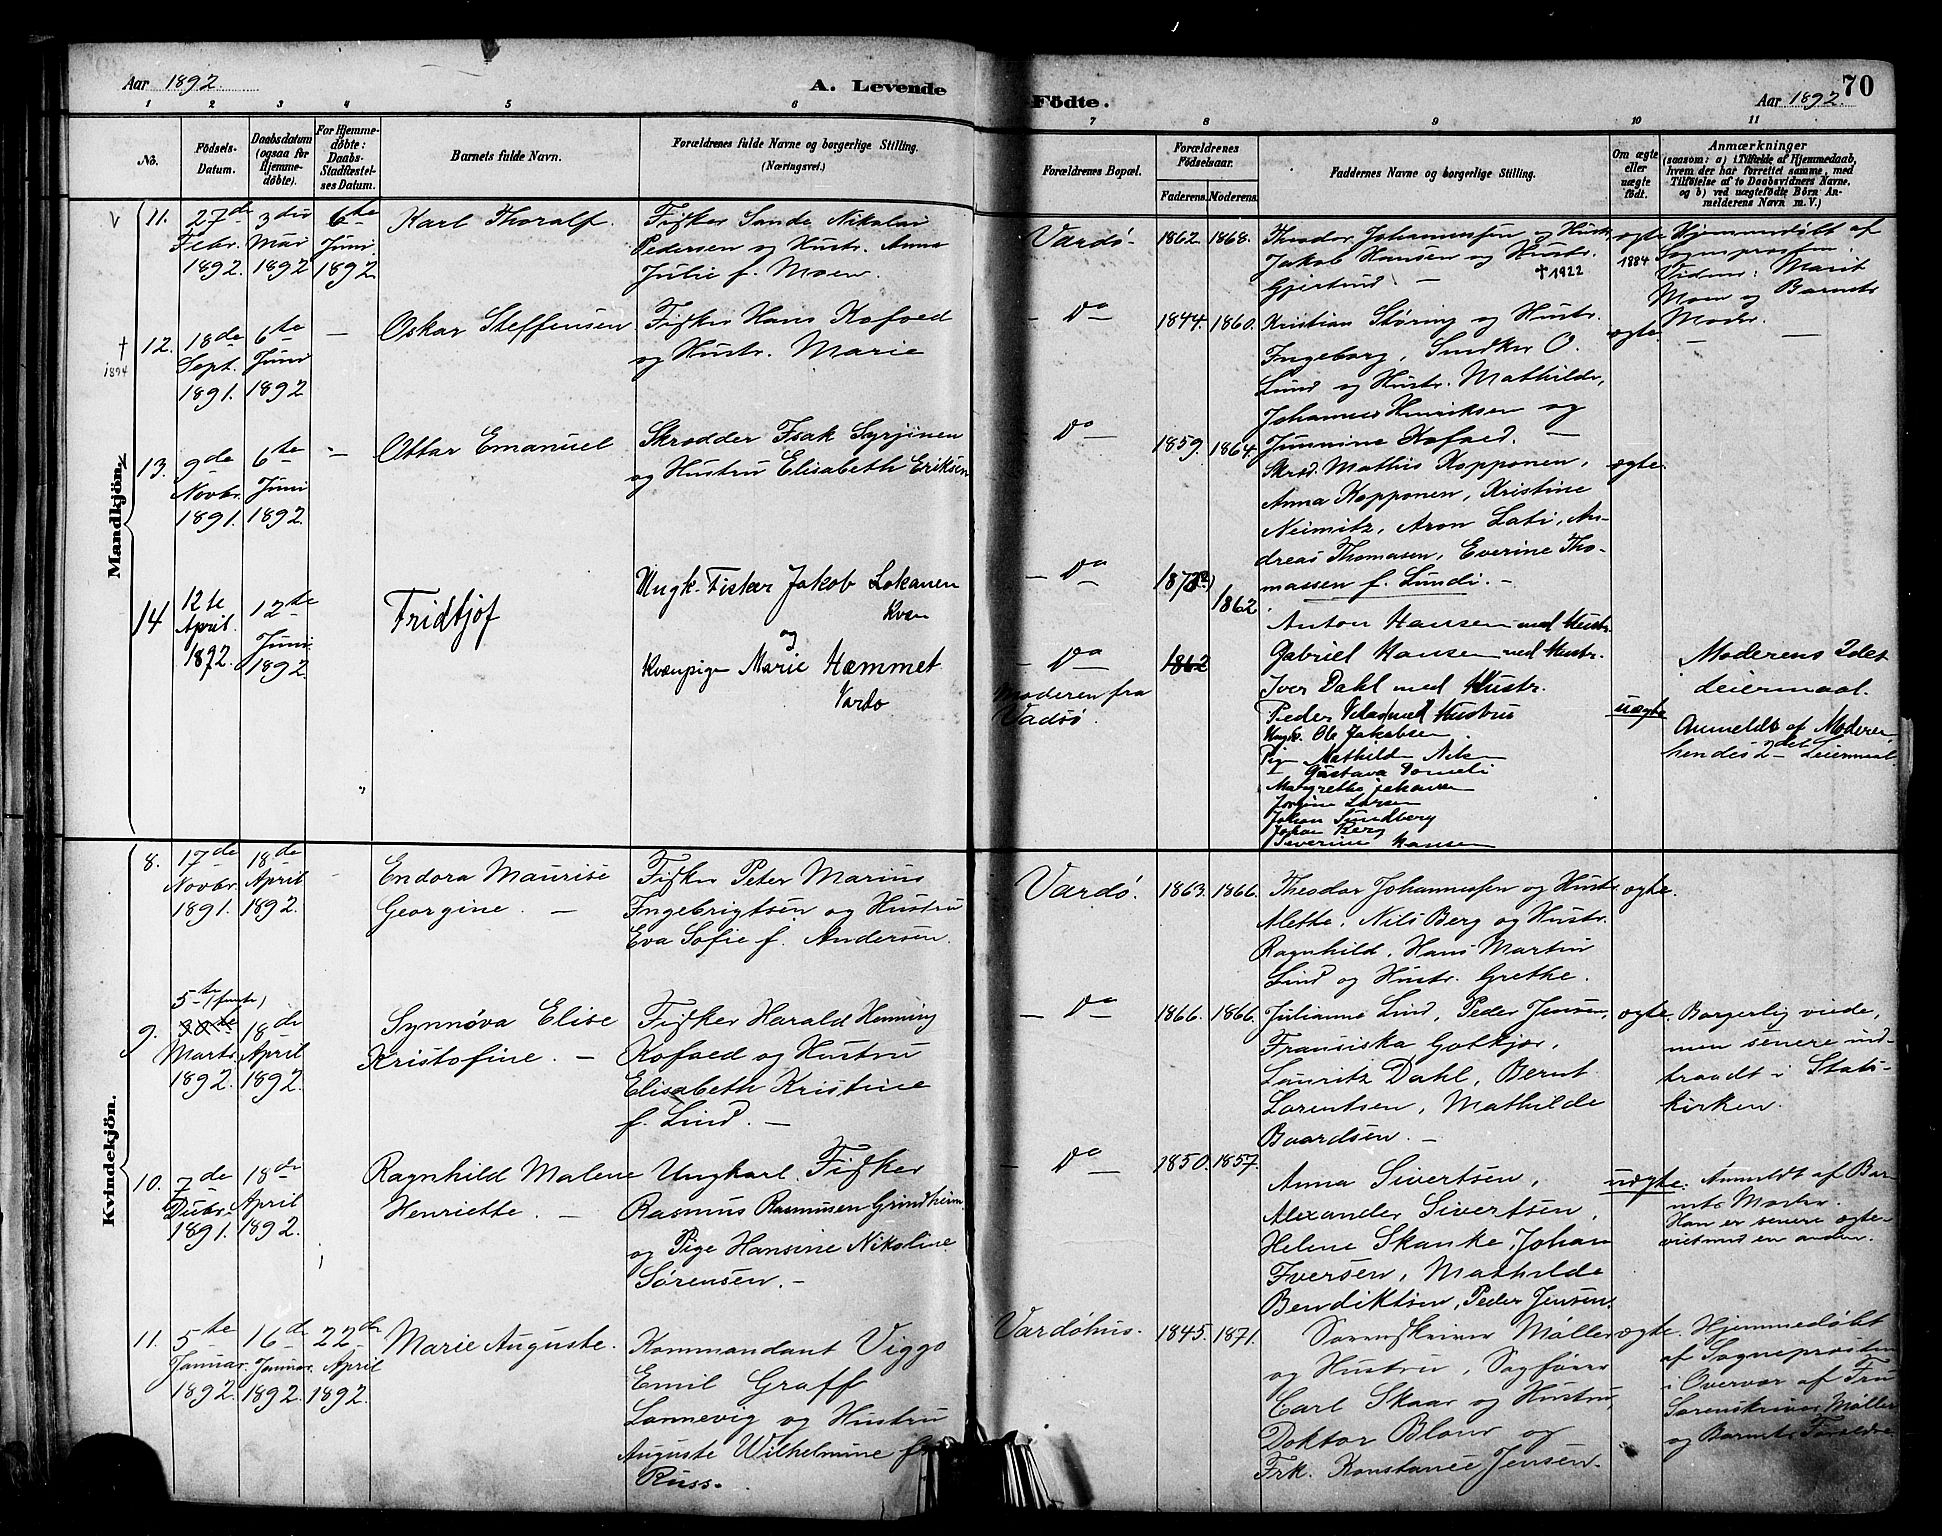 Aar 1892. A. Levende Födte. Aar 1892. 70
1 2 3 4 5 6 7 8 9 10 11
No.
Födsels-
Datum.
Daabsdatum
(ogsaa for
Hjemme-
døbte).
For Hjemme-
døbte:
Daabs-
Stadfæstel-
ses Datum.
Barnets fulde Navn.
Forældrenes fulde Navne og borgerlige Stilling.
(Næringsvei.)
Forældrenes Bopæl.
Forældrenes
Födselsaar.
Faderens. Moderens.
Faddernes Navne og borgerlige Stilling.
Om ægte
eller
uægte
født.
Anmærkninger
(saasom: a) i Tilfælde af Hjemmedaab,
hvem der har forrettet samme, med
Tilföielse af to Daabsvidners Navne,
og b) ved uægtefødte Börn An-
melderens Navn m. V.)
Mandkjön.
V
11.
27de
Febr.
1892.
3die
Mar
1892
6te
Juni
1892.
Karl Thoralf.
Fisker Sande Nikolai
Pedersen og Hustr. Anna
Julie f. Moen.
Vardø
1862. 1868.
Theodor Johannessen og Hustr.
Jakob Hansen og Hustr.
† 1922
Gjertrud –
ægte
1884
Hjemmedøbt af
Sogneprosten.
Vidner: Marit
Moen og Barnets
Moder.
†
1894
12.
18de
Sept.
1891.
6te
Juni
1892
–
Oskar Steffensen
Fisker Hans Kofoed
og Hustr. Marie
– Do –
1844. 1860.
Kristian Støring og Hustr.
Ingeborg, Snedker O.
Lund og Hustr. Mathilde,
Johannes Henriksen og
Jensine Kofoed. –
ægte.
– –
13.
9de
Novbr.
1891.
6te
Juni
1892.
–
Ottar Emanuel
Skrædder Isak Syrjinen
og Hustru Elisabeth Eriksen
Do –
1859. 1864.
Skræd. Mathis Kopponen,
Anna Kopponen, Kristine
Neimitz, Aron Lati, An-
dreas Thomasen, Everine Tho-
massen f. Lundi. –
ægte.
14
12te
April.
1892.
12te
Juni
1892
Fridtjof
Ungk. Fisker Jakob Lokanen
Kvæn
og
Kvænpige Marie Hæmmet
Vardø
– Do –
– Do –
Moderen fra
Vadsø.
1862
1862
Anton Hansen med Hustr.
Gabriel Hansen med Hustr.
Iver Dahl med Hustr.
Peder med Hustru
Ungk. Ole Jakobsen
Pige Mathilde Nils
Gustava
Margrethe Johansen
Jørgine Larsen
Johan Sundberg
Johan Berg
Severine Hansen
uægte
Moderens 2det
Leiermaal.
Anmeldt af Moderen
hendes 2det Leiermaal.
Kvindekjön.
8.
17de
Novbr.
1891.
18de
April
1892.
–
Endora Maurise
Georgine. –
Fisker Peter Marius
Ingebrigtsen og Hustru
Eva Sofie f. Andersen.
Vardø.
1863. 1866.
Theodor Johannessen og Hustr.
Alethe, Nils Berg og Hustr.
Ragnhild, Hans Martin
Lind og Hustr. Grethe.
ægte.
9.
5te (femte)
30te
Marts
1892.
18de
April
1892.
Synnøva Elise
Kristofine. –
Fisker Harald Henning
Kofoed og Hustru
Elisabeth Kristine
f. Lind. –
– Do –
1866. 1866.
Julianne Lind, Peder Jensen,
Fransiska Gotkjør,
Lauritz Dahl, Bernt
Lorentsen, Mathilde
Baardsen. –
ægte.
Borgerlig viede,
men senere ind-
traadt i Stats-
kirken.
10.
7de
Decbr.
1891.
18de
April
1892.
Ragnhild Malene
Henriette. –
Ungkarl Fisker
Rasmus Rasmusen Grindheim
og Pige Hansine Nikoline
Sørensen. –
– Do –
1850. 1857.
Anna Sivertsen,
Alexander Sivertsen,
Helene Skanke, Johan
Iversen, Mathilde
Bendiktsen, Peder Jensen.
uægte.
Anmeldt af Bar-
nets Moder.
Han er senere ægte-
viet med en anden.
11.
5te
Januar.
1892.
16de
Januar.
1892.
22de
April
1892.
Marie Auguste.
Kommandant Viggo
Emil Graff
Lannevig og Hustru
Auguste Wilhelmine f.
Russ.
Vardøhus.
1845. 1871.
Sorenskriver Møller
og Hustru, Sagfører
Carl Skaar og Hustru,
Doktor Blour og
Frk. Konstance Jensen.
ægte.
Hjemmedøbt
af Sogneprosten
i Overvær af Fru
Sorenskriver Møller
og Barnets Forældre